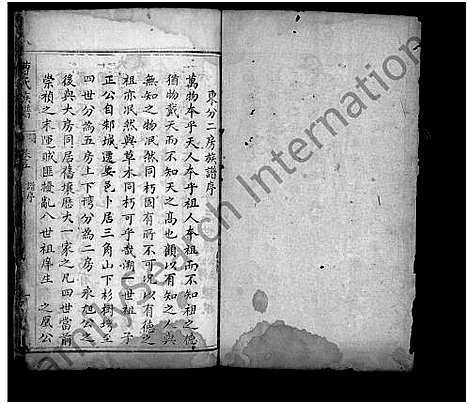 東分二房族譜序
萬物本乎天人本乎祖人本祖而不知祖之德
猶物戴天而不知天之高也顧以有知之人與
無知之物泯然同朽固有所不可况以有德之
祖亦泯然與草木同朽可乎哉溯一世祖 子
正公自邾城遷安邑卜居三角山下杉樹塆至
四世分為五房上下塆分為二房 永旭公之
後與大房同居舊壤歷大一家之凡四世當前
崇禎之末運賊匪擾亂八世祖庠生 之鳳公
氏族譜
譜序
FamilySearch International